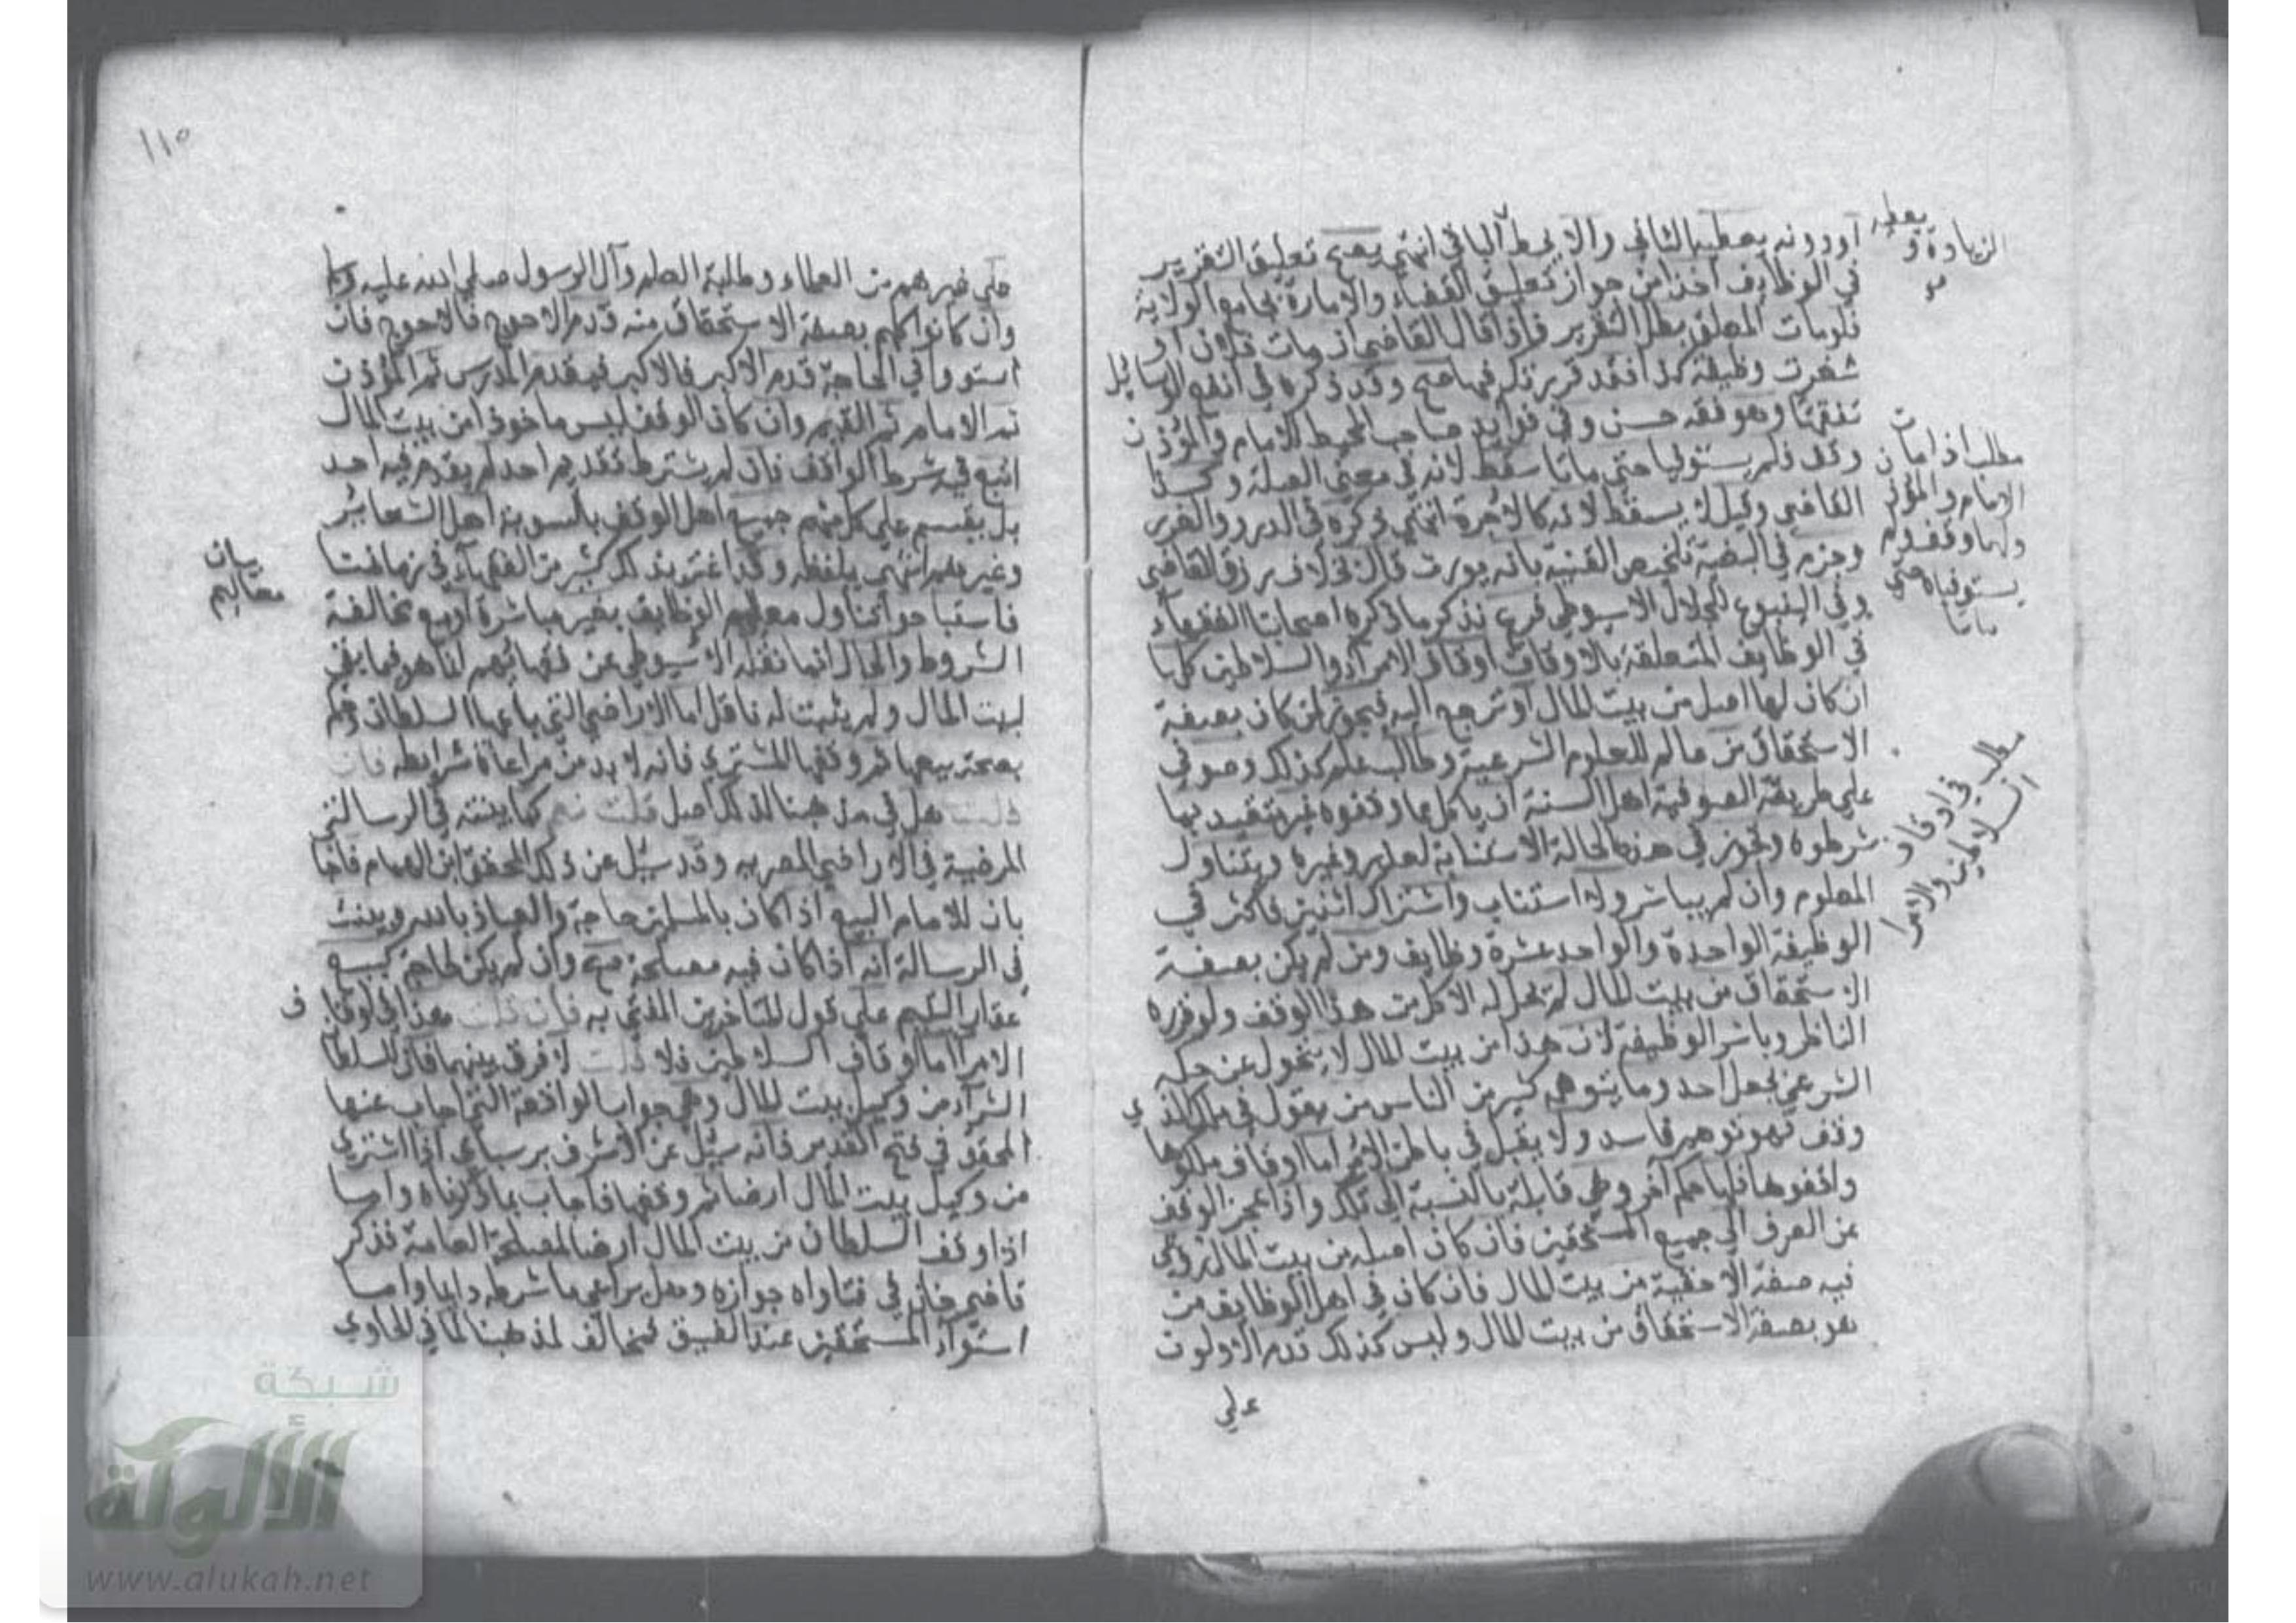 أو دونه يعطيه الثاني والا يحط الباقي انتهى يصح تعليق التقرير
في الوظايف اخذا من جواز تعليق القضاء والامارة بجامع الولاية
فلومات المعلق بطل التقرير فاذا قال القاضي ان مات فلان او
شغرت وظيفة كذا فقد قررتك فيها صح وقد ذكره في انفع الوسايل
تفقها وهو فقه حسن وفي فوايد صاحب المحيط للامام والمؤذن
وقف فلم يستوفيا حتى ماتا سقط لانه في معنى الصلة وكذا
القاضي وقيل لا يسقط لانه كالاجرة انتهى ذكره في الدرر والغرر
وجزم في البغية تلخيص القنية بانه يورث قال بخلاف رزق القاضي
وفي الينبوع للجلال الاسيوطي فرع نذكر ما ذكره اصحابنا الفقهاء
في الوظايف المتعلقة بالاوقاف اوقاف الامراء والسلاطين كلها
ان كان لها اصل من بيت المال او ترجع اليه فيجوز لمن كان بصفة
الاستحقاق من عالم للعلوم الشرعية وطالب علم كذلك وصوفي
على طريقة الصوفية اهل السنة ان ياكل مما وقفوه غير متقيد بما
شرطوه ويجوز في هذه الحالة الاستنابة لعذر وغيره ويتناول
المعلوم وان لم يباشر ولا استناب واشتراك اثنين فاكثر في
الوظيفة الواحدة والواحد عشرة وظايف ومن لم يكن بصفة
الاستحقاق من بيت المال لم يحل له الاكل من هذا الوقف ولو قرره
الناظر وباشر الوظيفة لان هذا من بيت المال لا يتحول عن حكمه
الشرعي بجعل احد وما يتوهمه كثير من الناس من يقول في ملك الذي
وقف فهو توهم فاسد ولا يقبل في باطن الامر اما اوقاف ملكوها
واقفوها فلها حكم اخر وهي قابلة بالنسبة الى تلك واذا عجز الوقف
عن الصرف الى جميع المستحقين فان كان اصله من بيت المال روعي
فيه صفة الاحقية من بيت المال فان كان في اهل الوظايف من
هو بصفة الاستحقاق من بيت المال وليس كذلك قدم الاولون
علي
يعطيه
الزيادة و
مطلب اذا مات
الامام والمؤذن
ولهما وقف ولم
يستوفياه حتى
ماتا
مطلب في اوقاف
السلاطين والامرا
١١٥
على غيرهم من العلماء وطلبة العلم وآل الرسول صلى الله عليه وسلم
وان كانوا كلهم بصفة الاستحقاق منه قدم الاحوج فالاحوج فان
استووا في الحاجة قدم الاكبر فالاكبر فيقدم المدرس ثم المؤذن
ثم الامام ثم القيم وان كان الوقف ليس ماخوذا من بيت المال
اتبع فيه شرط الواقف فان لم يشترط تقديم احد لم يقدم فيه احد
بل يقسم على كل منهم جميع اهل الوقف بالسوية اهل الشعائر
وغيرهم انتهى بلفظه وقد اغتر بذلك كثير من الفقهاء في زماننا
فاستباحوا تناول معاليم الوظايف بغير مباشرة او مع مخالفة
الشروط والحال انما نقله الاسيوطي عن فقهائهم انما هو فيما بقي
لبيت المال ولم يثبت له ناقل اما الاراضي التي باعها السلطان وحكم
بصحة بيعها ثم وقفها المشتري فانه لا بد من مراعاة شرايطه فان
قلت هل في مذهبنا لذلك اصل قلت نعم كما بينته في الرسالة
المرضية في الاراضي المصريه وقد سئل عن ذلك المحقق ابن الهمام فاجاب
بان للامام البيع اذا كان بالمسلمين حاجة والعياذ بالله وبينت
في الرسالة انه اذا كان فيه مصلحة صح وان لم يكن لحاجة كبيع
عقار اليتيم على قول المتاخرين المفتى به فان قلت هذا في اوقاف
الامرا اما اوقاف السلاطين فلا قلت لا فرق بينهما فان للسلطان
الشراء من وكيل بيت المال وهي جواب الواقعة التي اجاب عنها
المحقق في فتح القدير فانه سئل عن الاشرف برسباي اذا اشترى
من وكيل بيت المال ارضا ثم وقفها فاجاب بما ذكرناه واما
اذا وقف السلطان من بيت المال ارضا للمصلحة العامة فذكر
قاضي خان في فتاواه جوازه وهل يراعى ما شرطه دايما واما
استواء المستحقين عند الضيق فمخالف لمذهبنا لما في الحاوي
بيان
معاليم
شبكة
الألوكة
www.alukah.net